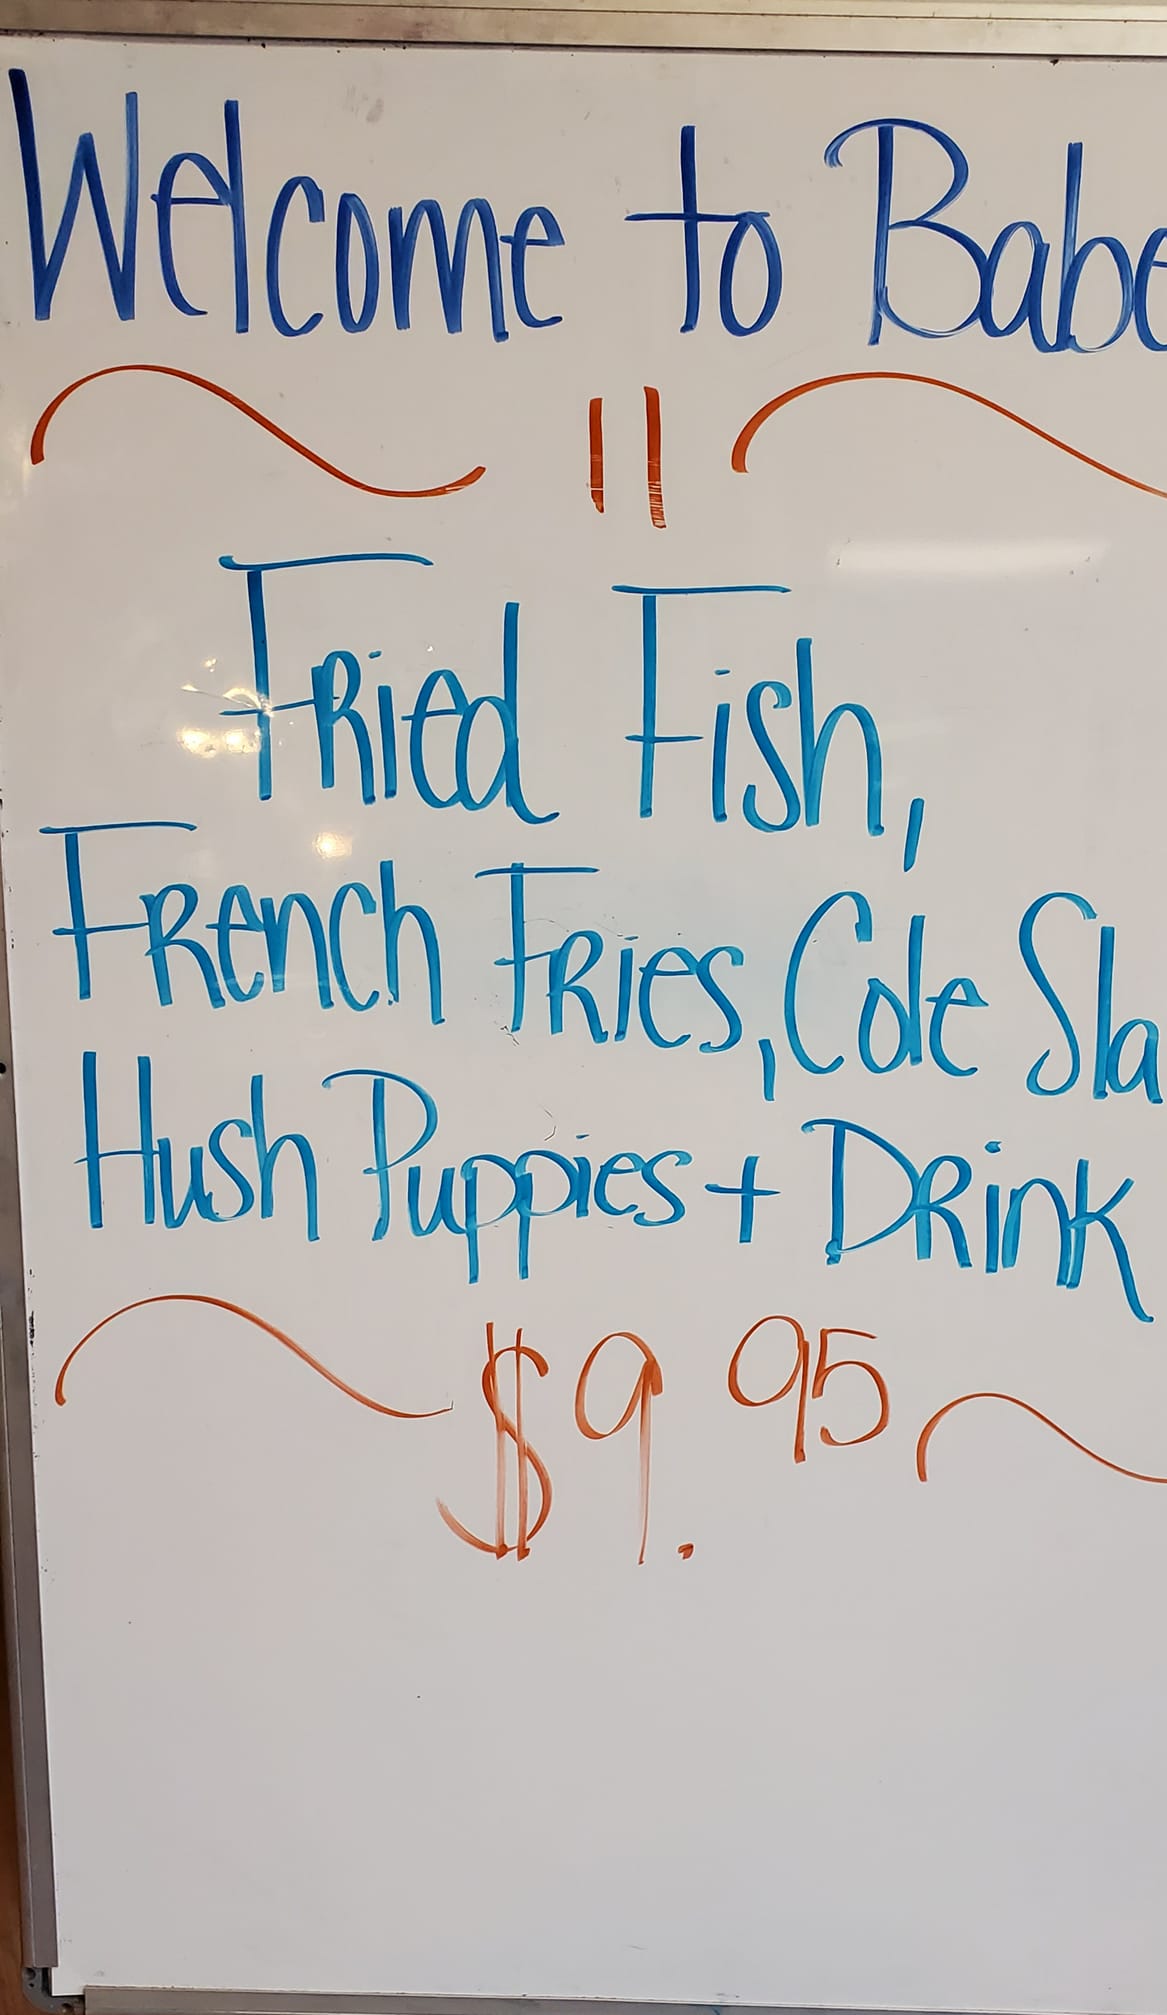 Welcome to Babe
11
Fried Fish,
French Fries, Cole Sla
Hush Puppies + Drink
$9.95